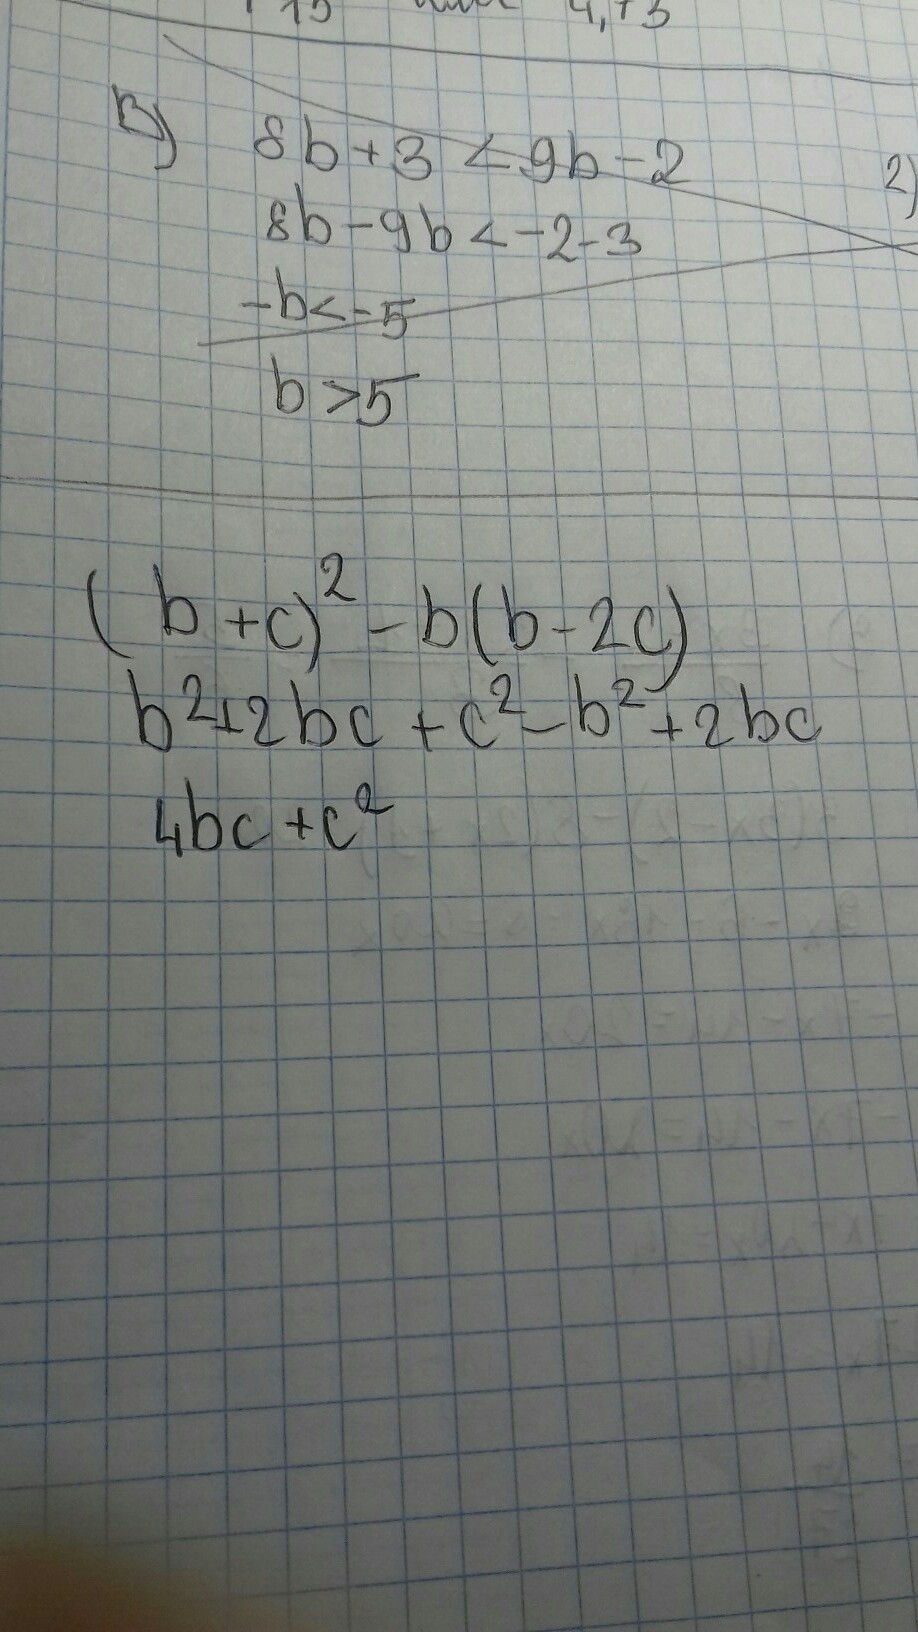 в) 8b+3<9b-2
2)
8b-9b<-2-3
-b<-5
b>5
(b+c)²-b(b-2c)
b²+2bc+c²-b²+2bc
4bc+c²